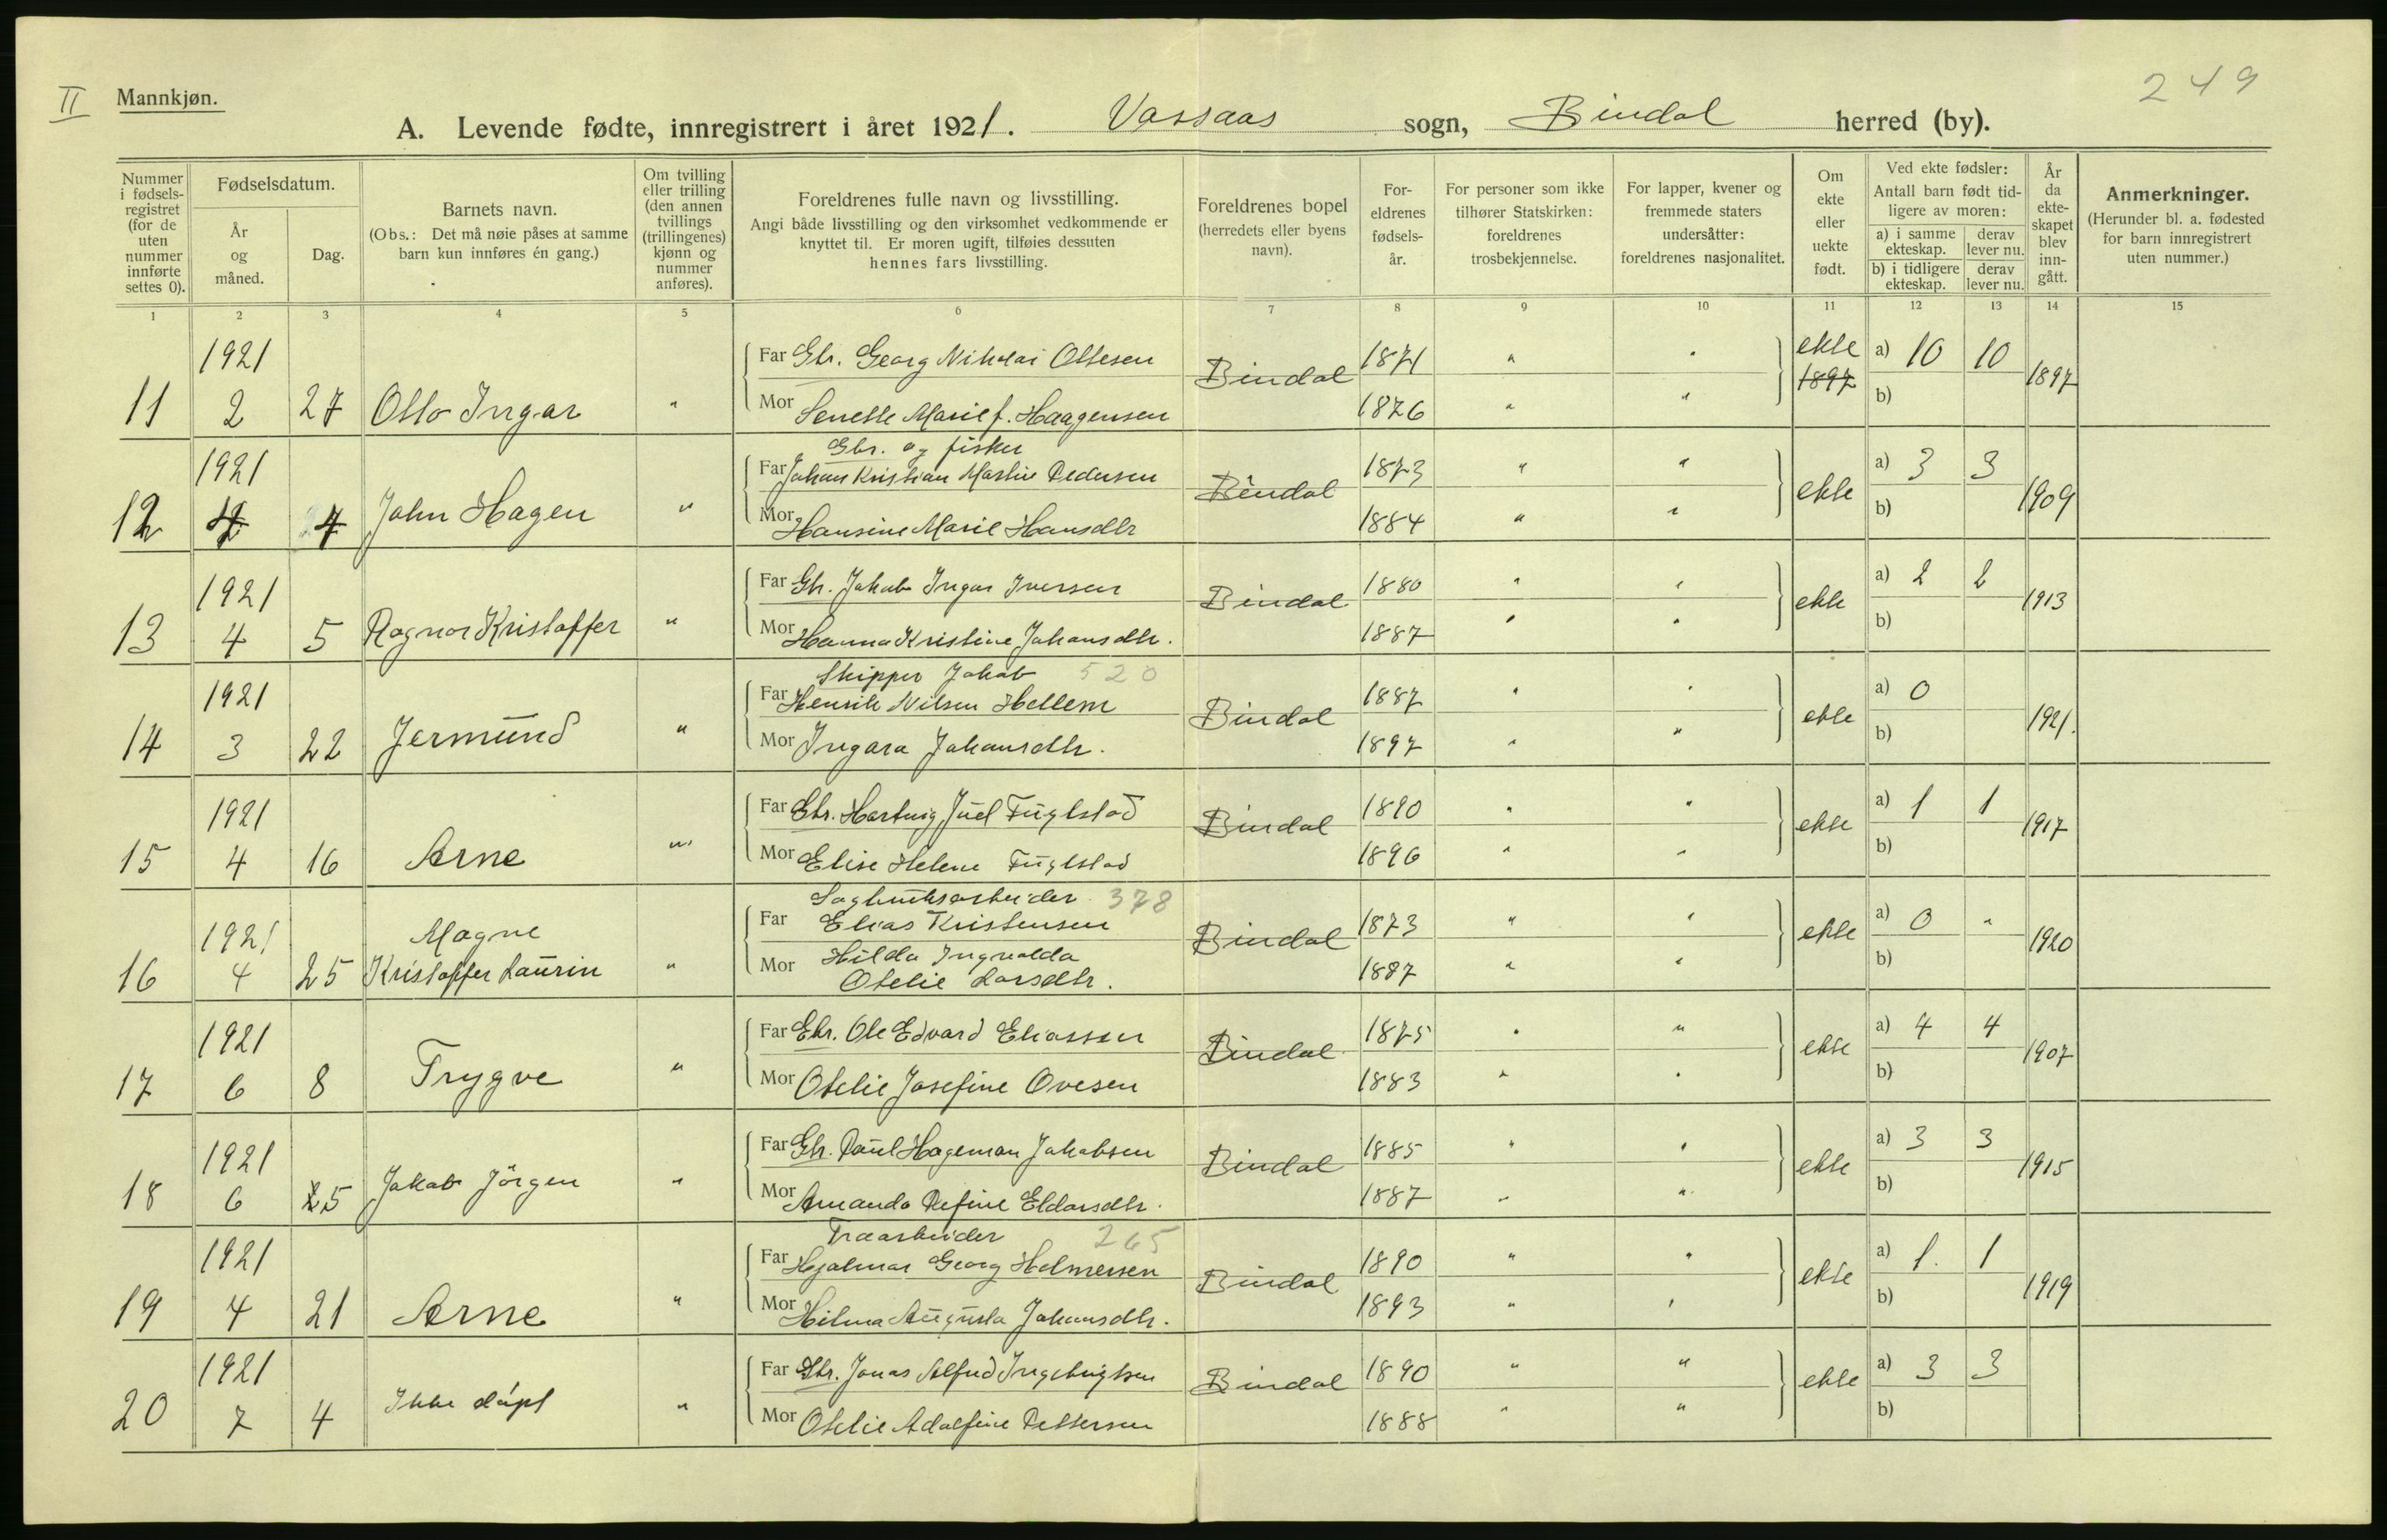 II
Mannkjøn.
249
A. Levende fødte, innregistrert i året 1921. Vassaas sogn, Bindal herred (by).
Nummer i fødselsregistret (for de uten nummer innførte settes 0).
Fødselsdatum.
År og måned.
Dag.
Barnets navn.
(Obs.: Det må nøie påses at samme barn kun innføres én gang.)
Om tvilling eller trilling (den annen tvillings (trillingenes) kjønn og nummer anføres).
Foreldrenes fulle navn og livsstilling.
Angi både livsstilling og den virksomhet vedkommende er knyttet til. Er moren ugift, tilføies dessuten hennes fars livsstilling.
Foreldrenes bopel (herredets eller byens navn).
Foreldrenes fødselsår.
For personer som ikke tilhører Statskirken: foreldrenes trosbekjennelse.
For lapper, kvener og fremmede staters undersåtter: foreldrenes nasjonalitet.
Om ekte eller uekte født.
Ved ekte fødsler: Antall barn født tidligere av moren:
a) i samme ekteskap.
derav lever nu.
b) i tidligere ekteskap.
derav lever nu.
År da ekteskapet blev inngått.
Anmerkninger.
(Herunder bl. a. fødested for barn innregistrert uten nummer.)
1 2 3 4 5 6 7 8 9 10 11 12 13 14 15
11 1921 2 27 Otto Ingar " Far Gbr. Georg Nikolai Ottesen Bindal 1871 " " ekte a) 10 10 1897
Mor Senette Marie f. Haagensen 1876 " " 1897 b)
12 1921 4 Johan Hagen " Gbr. og fisker
Far Johan Kristian Martin Pedersen Bindal 1873 " " ekte a) 3 3 1909
Mor Hansine Marie Hansdtr 1884 " " b)
13 1921 4 5 Ragnar Kristoffer " Far Gbr. Jakob Ingar Iversen Bindal 1880 " " ekte a) 2 2 1913
Mor Hanna Kristine Johansdtr. 1887 " " b)
14 1921 3 22 Jermund " Skipper Jakob 520
Far Henrik Nilsen Hellem Bindal 1887 " " ekte a) 0 1921.
Mor Ingara Johansdtr. 1897 " " b)
15 1921 4 16 Arne " Far Gbr. Hartvig Juel Fuglstad Bindal 1890 " " ekte a) 1 1 1917
Mor Elise Helene Fuglstad 1896 " " b)
16 1921 4 25 Magne Kristoffer Laurin " Sagbruksarbeider 378
Far Elias Kristensen Bindal 1873 " " ekte a) 0 " 1920
Mor Hilda Ingvalda Otelie Larsdtr. 1887 " " b)
17 1921 6 8 Trygve " Far Gbr. Ole Edvard Eliassen Bindal 1875 " " ekte a) 4 4 1907
Mor Otelie Josefine Ovesen 1883 " " b)
18 1921 6 25 Jakob Jörgen " Far Gbr. Paul Hageman Jakobsen Bindal 1885 " " ekte a) 3 3 1915
Mor Amanda Refine Eldarsdtr. 1887 " " b)
19 1921 4 21 Arne " Træarbeider 265
Far Hjalmar Georg Holmersen Bindal 1890 " " ekte a) 1. 1 1919
Mor Hilma Augusta Johansdtr. 1893 " " b)
20 1921 7 4 Ikke döpt " Far Gbr. Jonas Alfred Ingebrigtsen Bindal 1890 " " ekte a) 3 3
Mor Otelie Adolfine Pettersen 1888 " " b)